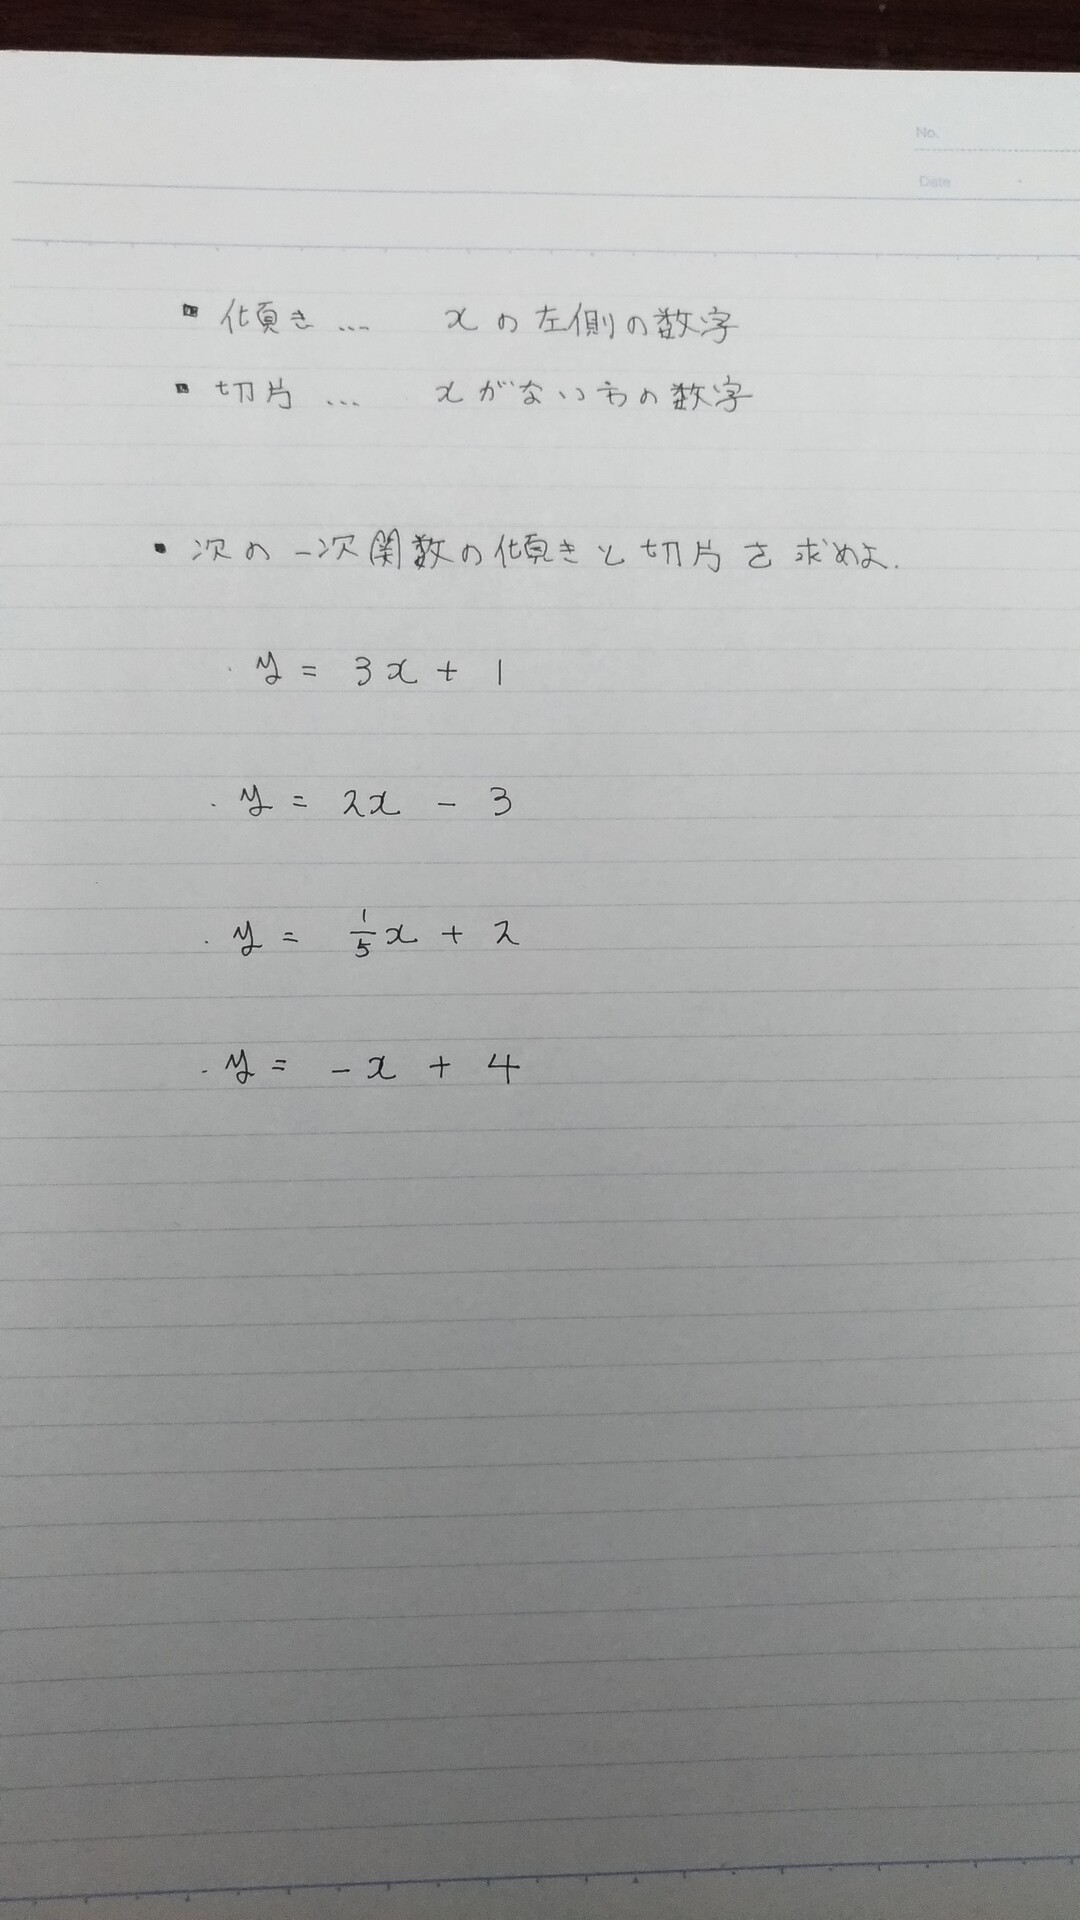 No.
Date
▪ 傾き … xの左側の数字
▪ 切片 … xがない方の数字
・次の一次関数の傾きと切片を求めよ.
・y = 3x + 1
・y = 2x - 3
・y = 1/5 x + 2
・y = -x + 4